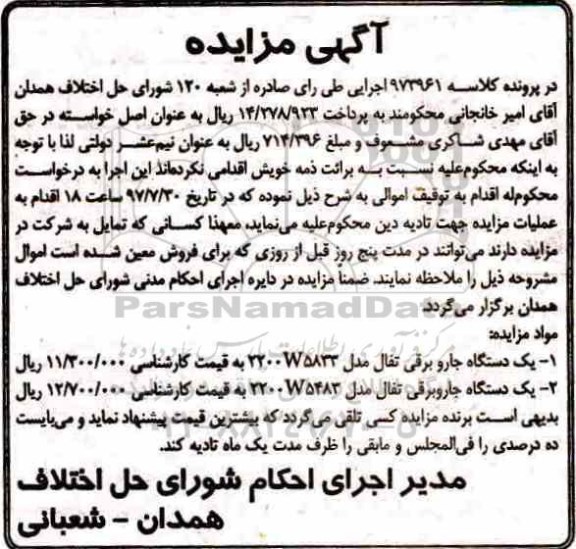 آگهی مزایده
در پرونده کلاسه ۹۷۳۹۶۱ اجرایی طی رای صادره از شعبه ۱۲۰ شورای حل اختلاف همدان
آقای امیر خانجانی محکومند به پرداخت ۱۴/۲۷۸/۹۲۳ ریال به عنوان اصل خواسته در حق
آقای مهدی شاکری مشعوف و مبلغ ۷۱۴/۳۹۶ ریال به عنوان نیم‌عشر دولتی لذا با توجه
به اینکه محکوم‌علیه نسبت به برائت ذمه خویش اقدامی نکرده‌اند این اجرا به درخواست
محکوم‌له اقدام به توقیف اموالی به شرح ذیل نموده که در تاریخ ۹۷/۷/۳۰ ساعت ۱۸ اقدام به
عملیات مزایده جهت تادیه دین محکوم‌علیه می‌نماید، معهذا کسانی که تمایل به شرکت در
مزایده دارند می‌توانند در مدت پنج روز قبل از روزی که برای فروش معین شده است اموال
مشروحه ذیل را ملاحظه نمایند. ضمناً مزایده در دایره اجرای احکام مدنی شورای حل اختلاف
همدان برگزار می‌گردد.
ParsNamadData
مواد مزایده:
۱- یک دستگاه جارو برقی تفال مدل ۲۲۰۰W۵۸۳۳ به قیمت کارشناسی ۱۱/۳۰۰/۰۰۰ ریال
۲- یک دستگاه جاروبرقی تفال مدل ۲۲۰۰W۵۴۸۳ به قیمت کارشناسی ۱۲/۷۰۰/۰۰۰ ریال
بدیهی است برنده مزایده کسی تلقی می‌گردد که بیشترین قیمت پیشنهاد نماید و می‌بایست
ده درصدی را فی‌المجلس و مابقی را ظرف مدت یک ماه تادیه کند.
مدیر اجرای احکام شورای حل اختلاف
همدان - شعبانی